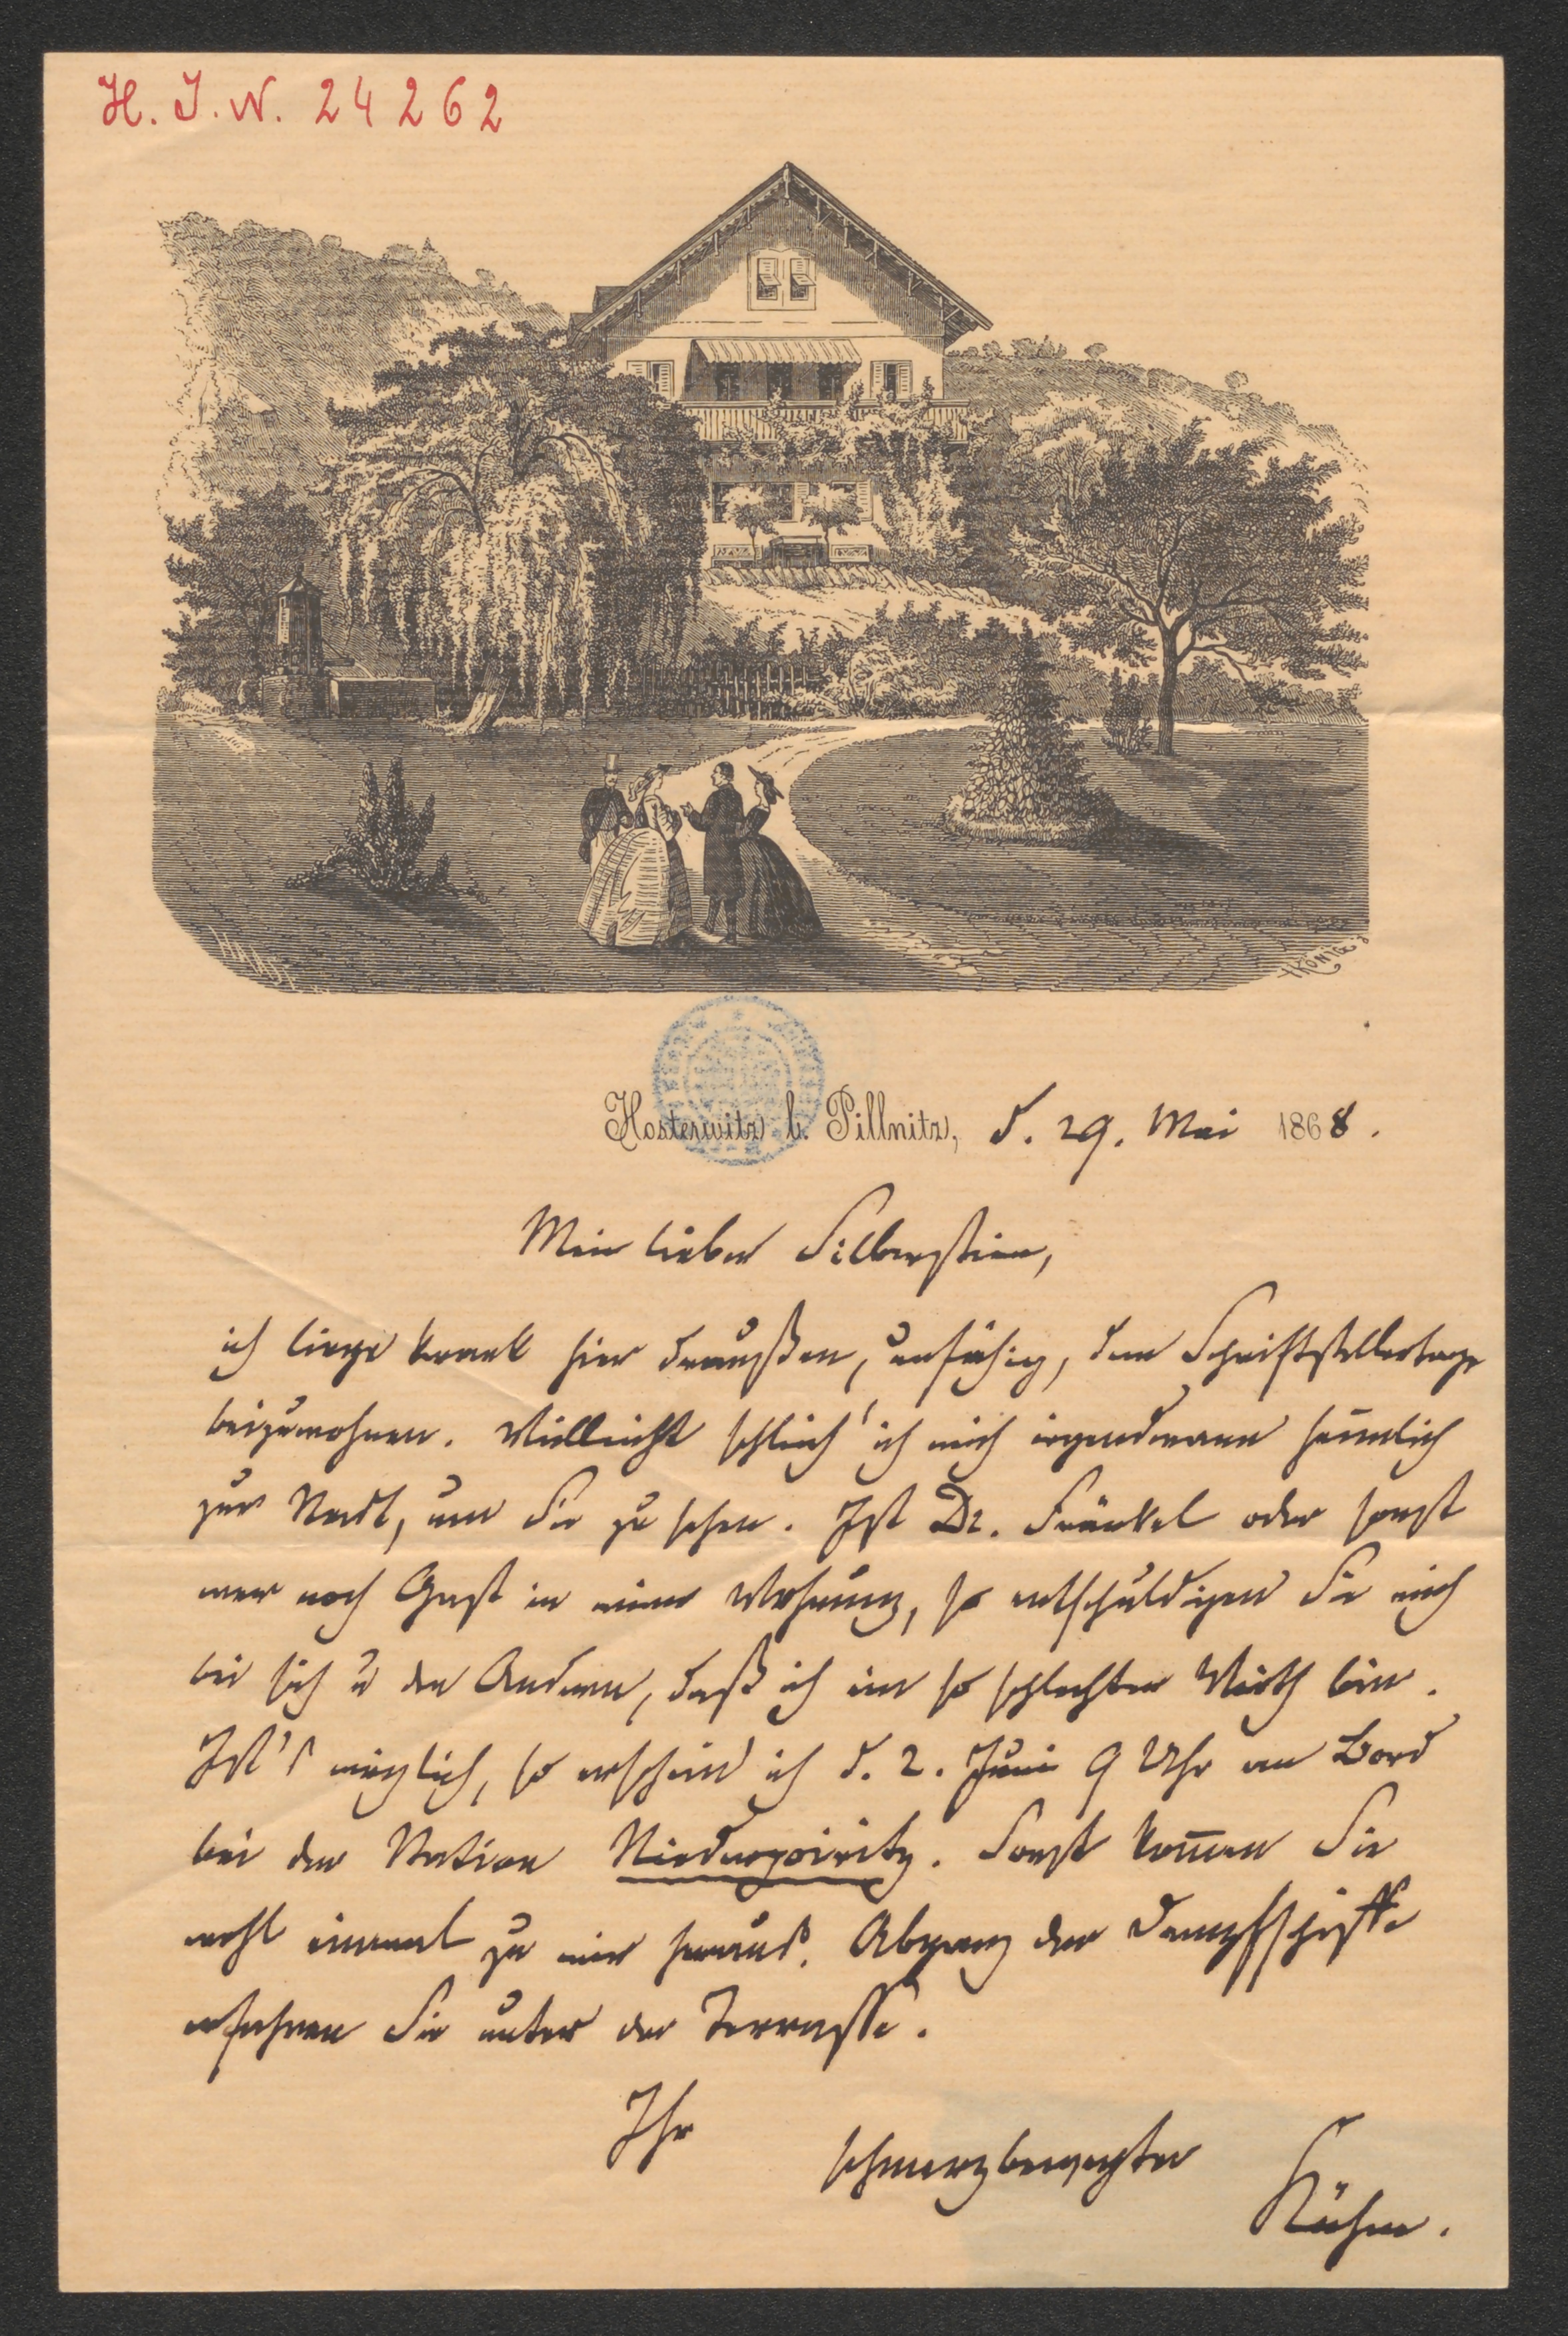 H. I. N. 24262
KÖNIG
Hosterwitz b. Pillnitz, d. 29. Mai 1868.
Mein lieber Silberstein,
ich liege krank hier draußen, unfähig, dem Schriftstellertage
beizuwohnen. Vielleicht schleich' ich mich irgendwann heimlich
zur Stadt, um Sie zu sehen. Ist Dr. Fränkel oder sonst
wer noch Gast in meiner Wohnung, so entschuldigen Sie mich
bei sich u den Andern, daß ich ein so schlechter Wirth bin.
Ist's möglich, so erschein' ich d. 2. Juni 9 Uhr am Bord
bei der Station Niederpoiritz. Sonst kom̄en Sie
wohl einmal zu mir heraus. Abgang der Dampfschiffe
erfahren Sie unter der Terrasse.
Ihr
schmerzbewegter